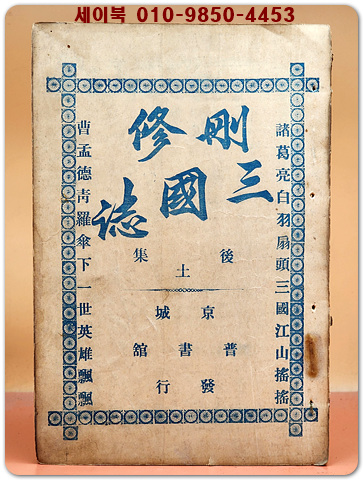 세이북 010-9850-4453
諸葛亮白羽扇頭三國江山搖搖
刪修
三國誌
後集
土
京城
普書舘
發行
曹孟德靑羅傘下一世英雄飄飄